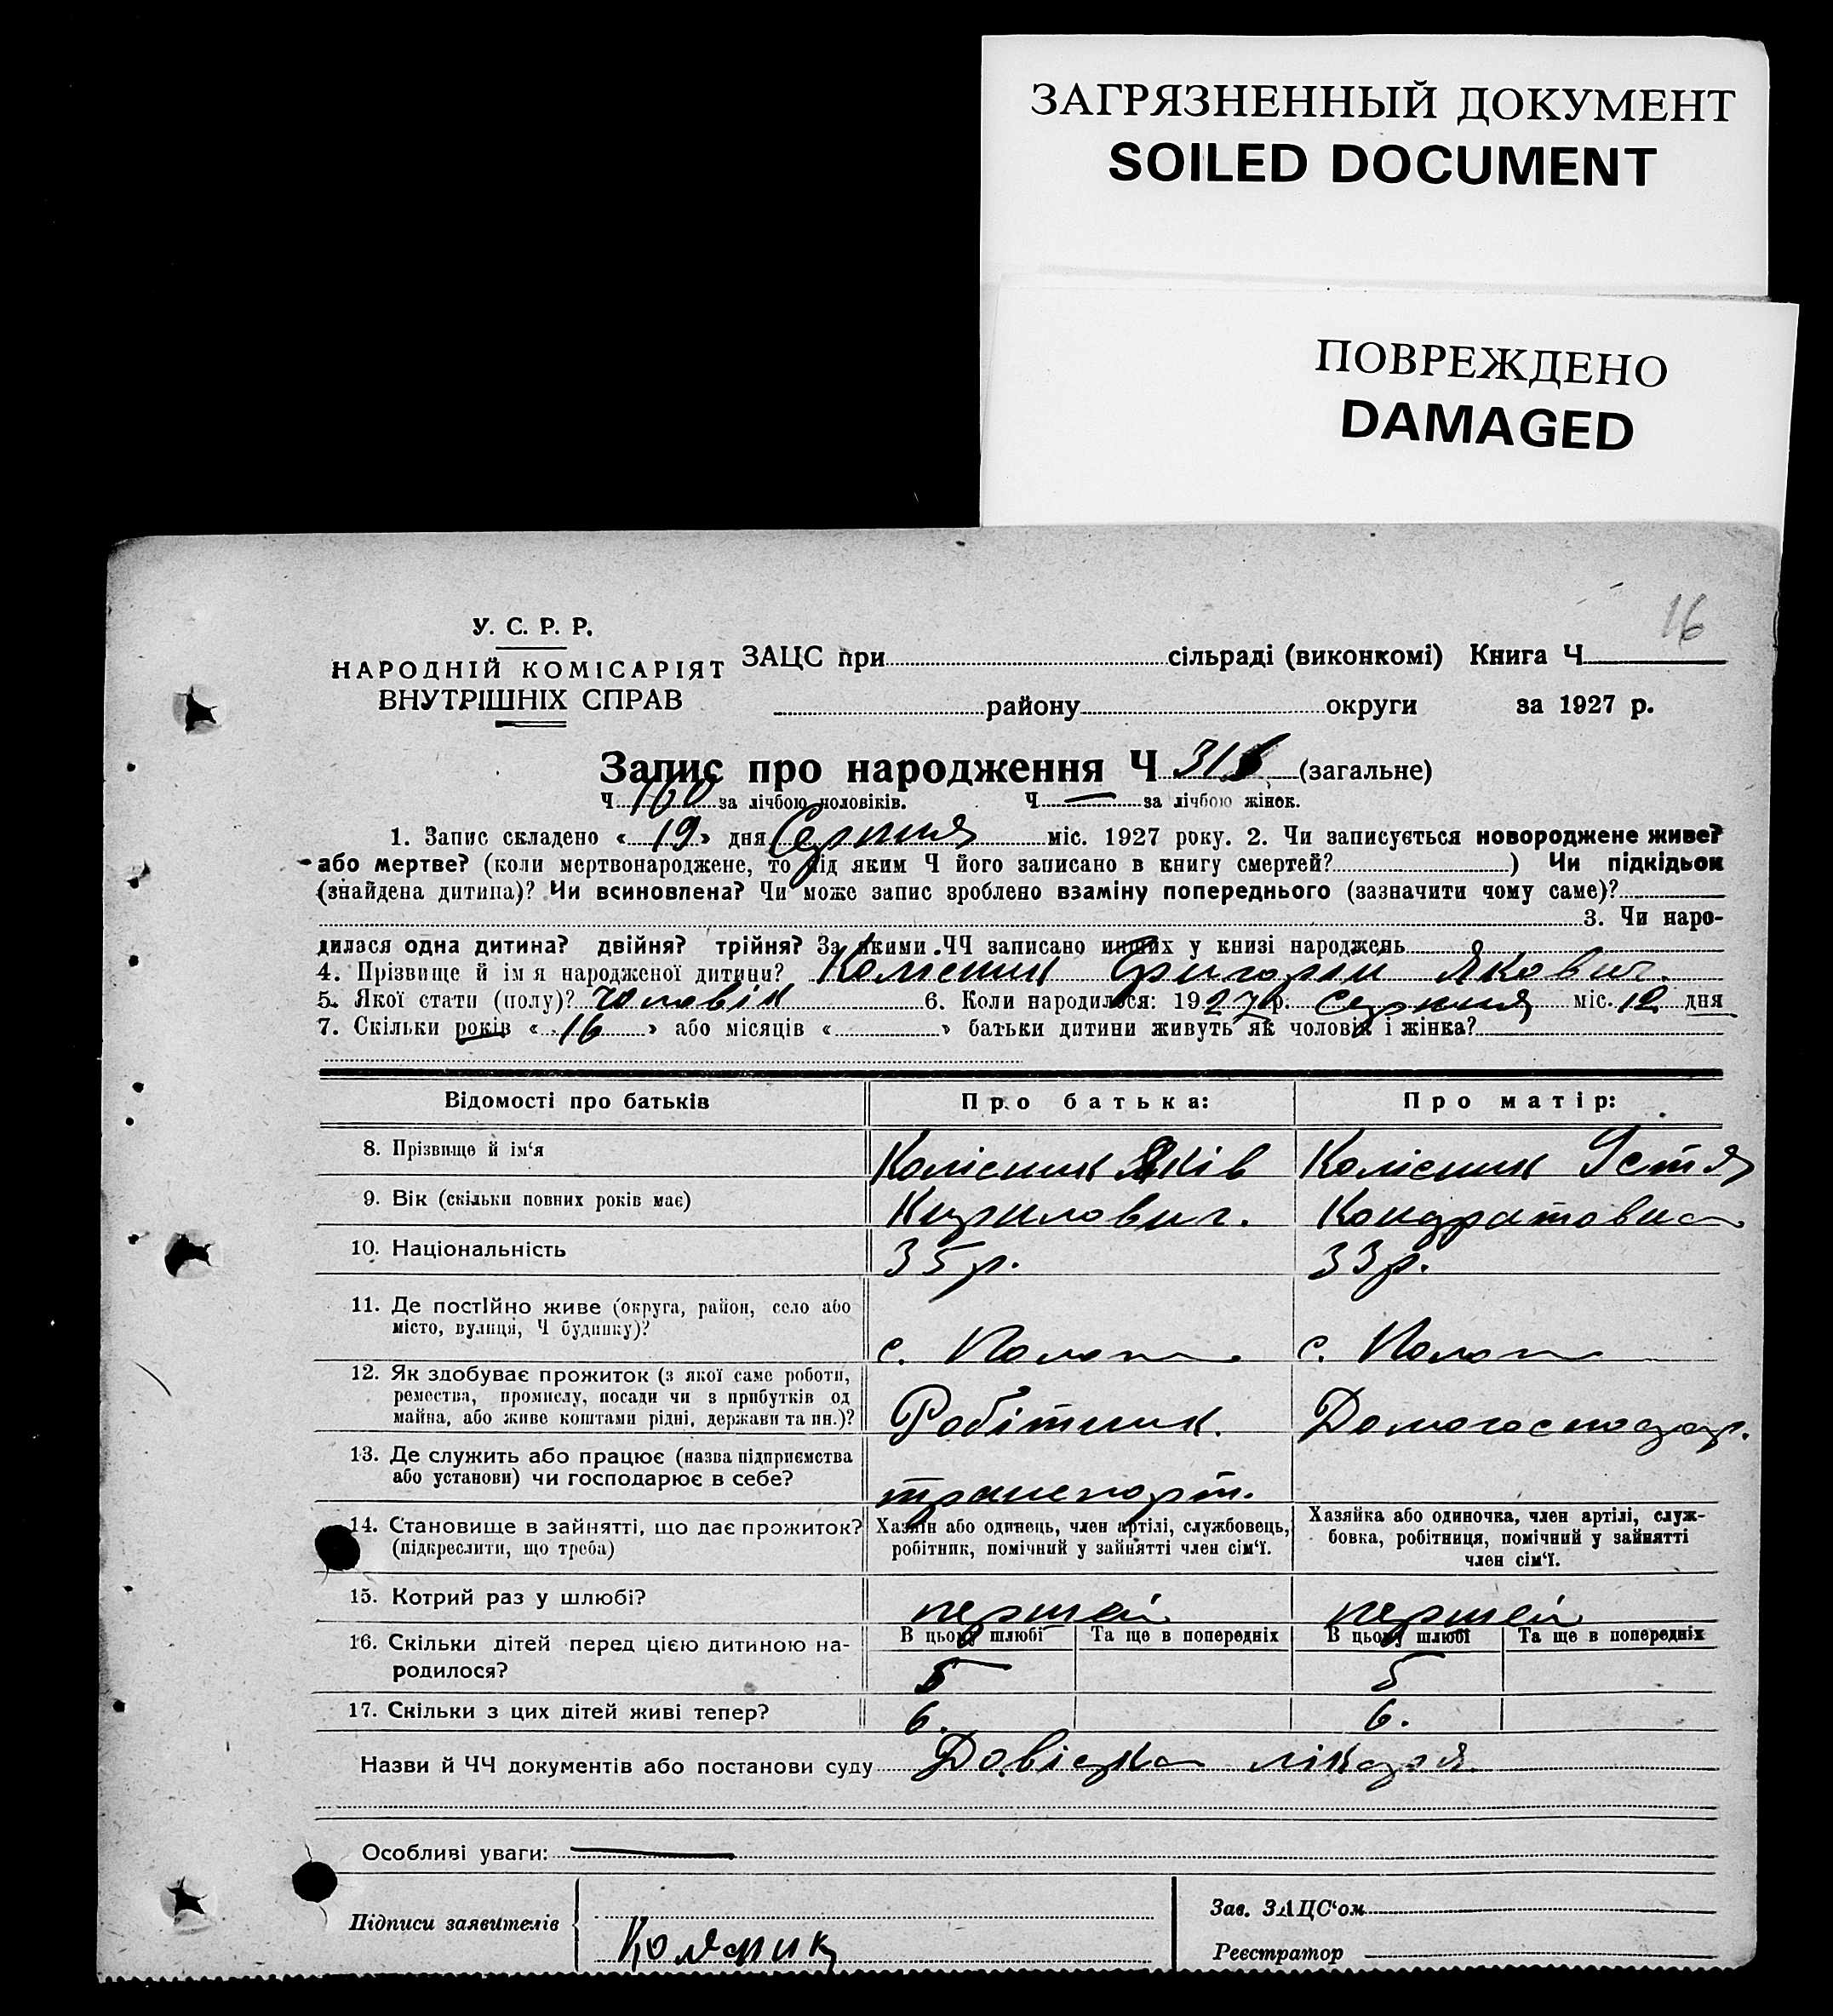 ЗАГРЯЗНЕННЫЙ ДОКУМЕНТ
SOILED DOCUMENT
ПОВРЕЖДЕНО
DAMAGED
16
У. С. Р. Р.
НАРОДНІЙ КОМІСАРІЯТ
ВНУТРІШНІХ СПРАВ
ЗАЦС при сільраді (виконкомі) Книга Ч
району округи за 1927 р.
Запис про народження Ч (загальне)
Ч 160 за лічбою чоловіків. Ч — за лічбою жінок.
1. Запис складено « 19 » дня Серпня міс. 1927 року. 2. Чи записується новороджене живе?
або мертве? (коли мертвонароджене, то під яким Ч його записано в книгу смертей? ) Чи підкідьок
(знайдена дитина)? Чи всиновлена? Чи може запис зроблено взаміну попереднього (зазначити чому саме)?
3. Чи наро-
дилася одна дитина? двійня? трійня? За якими ЧЧ записано инших у книзі народжень
4. Прізвище й ім я народженої дитини? Колісник Григорій Якович.
5. Якої стати (полу)? Чоловік 6. Коли народилося: 1927 р. Серпня міс. 12 дня
7. Скільки років « 16 » або місяців « » батьки дитини живуть як чоловік і жінка?
Відомості про батьків Про батька: Про матір:
8. Прізвище й ім‘я Колісник Яків Колісник Устя
9. Вік (скільки повних років має) Кирилович. Кондратовна
10. Національність 35 р. 33 р.
11. Де постІйно живе (округа, район, село або
місто, вулиця, Ч будинку)? с. с.
12. Як здобуває прожиток (з якої саме роботи,
ремества, промислу, посади чи з прибутків од
майна, або живе коштами рідні, держави та ин.)? Робітник. Домогосподар.
13. Де служить або працює (назва підприємства
або установи) чи господарює в себе? транспорт.
14. Становище в зайнятті, що дає прожиток?
(підкреслити, що треба)
Хазяїн або одинець, член артілі, службовець,
робітник, помічний у зайнятті член сім‘ї.
Хазяйка або одиночка, член артілі, служ-
бовка, робітниця, помічний у зайнятті
член сім‘ї.
15. Котрий раз у шлюбі? першей першей
16. Скільки дітей перед цією дитиною на-
родилося?
В цьому шлюбі Та ще в попередніх В цьому шлюбі Та ще в попередніх
5 5
17. Скільки з цих дітей живі тепер? 6. 6.
Назви й ЧЧ документів або постанови суду Довідка лікаря
Особливі уваги: —
Підписи заявителів
Колісник
Зав. ЗАЦС‘ом
Реєстратор